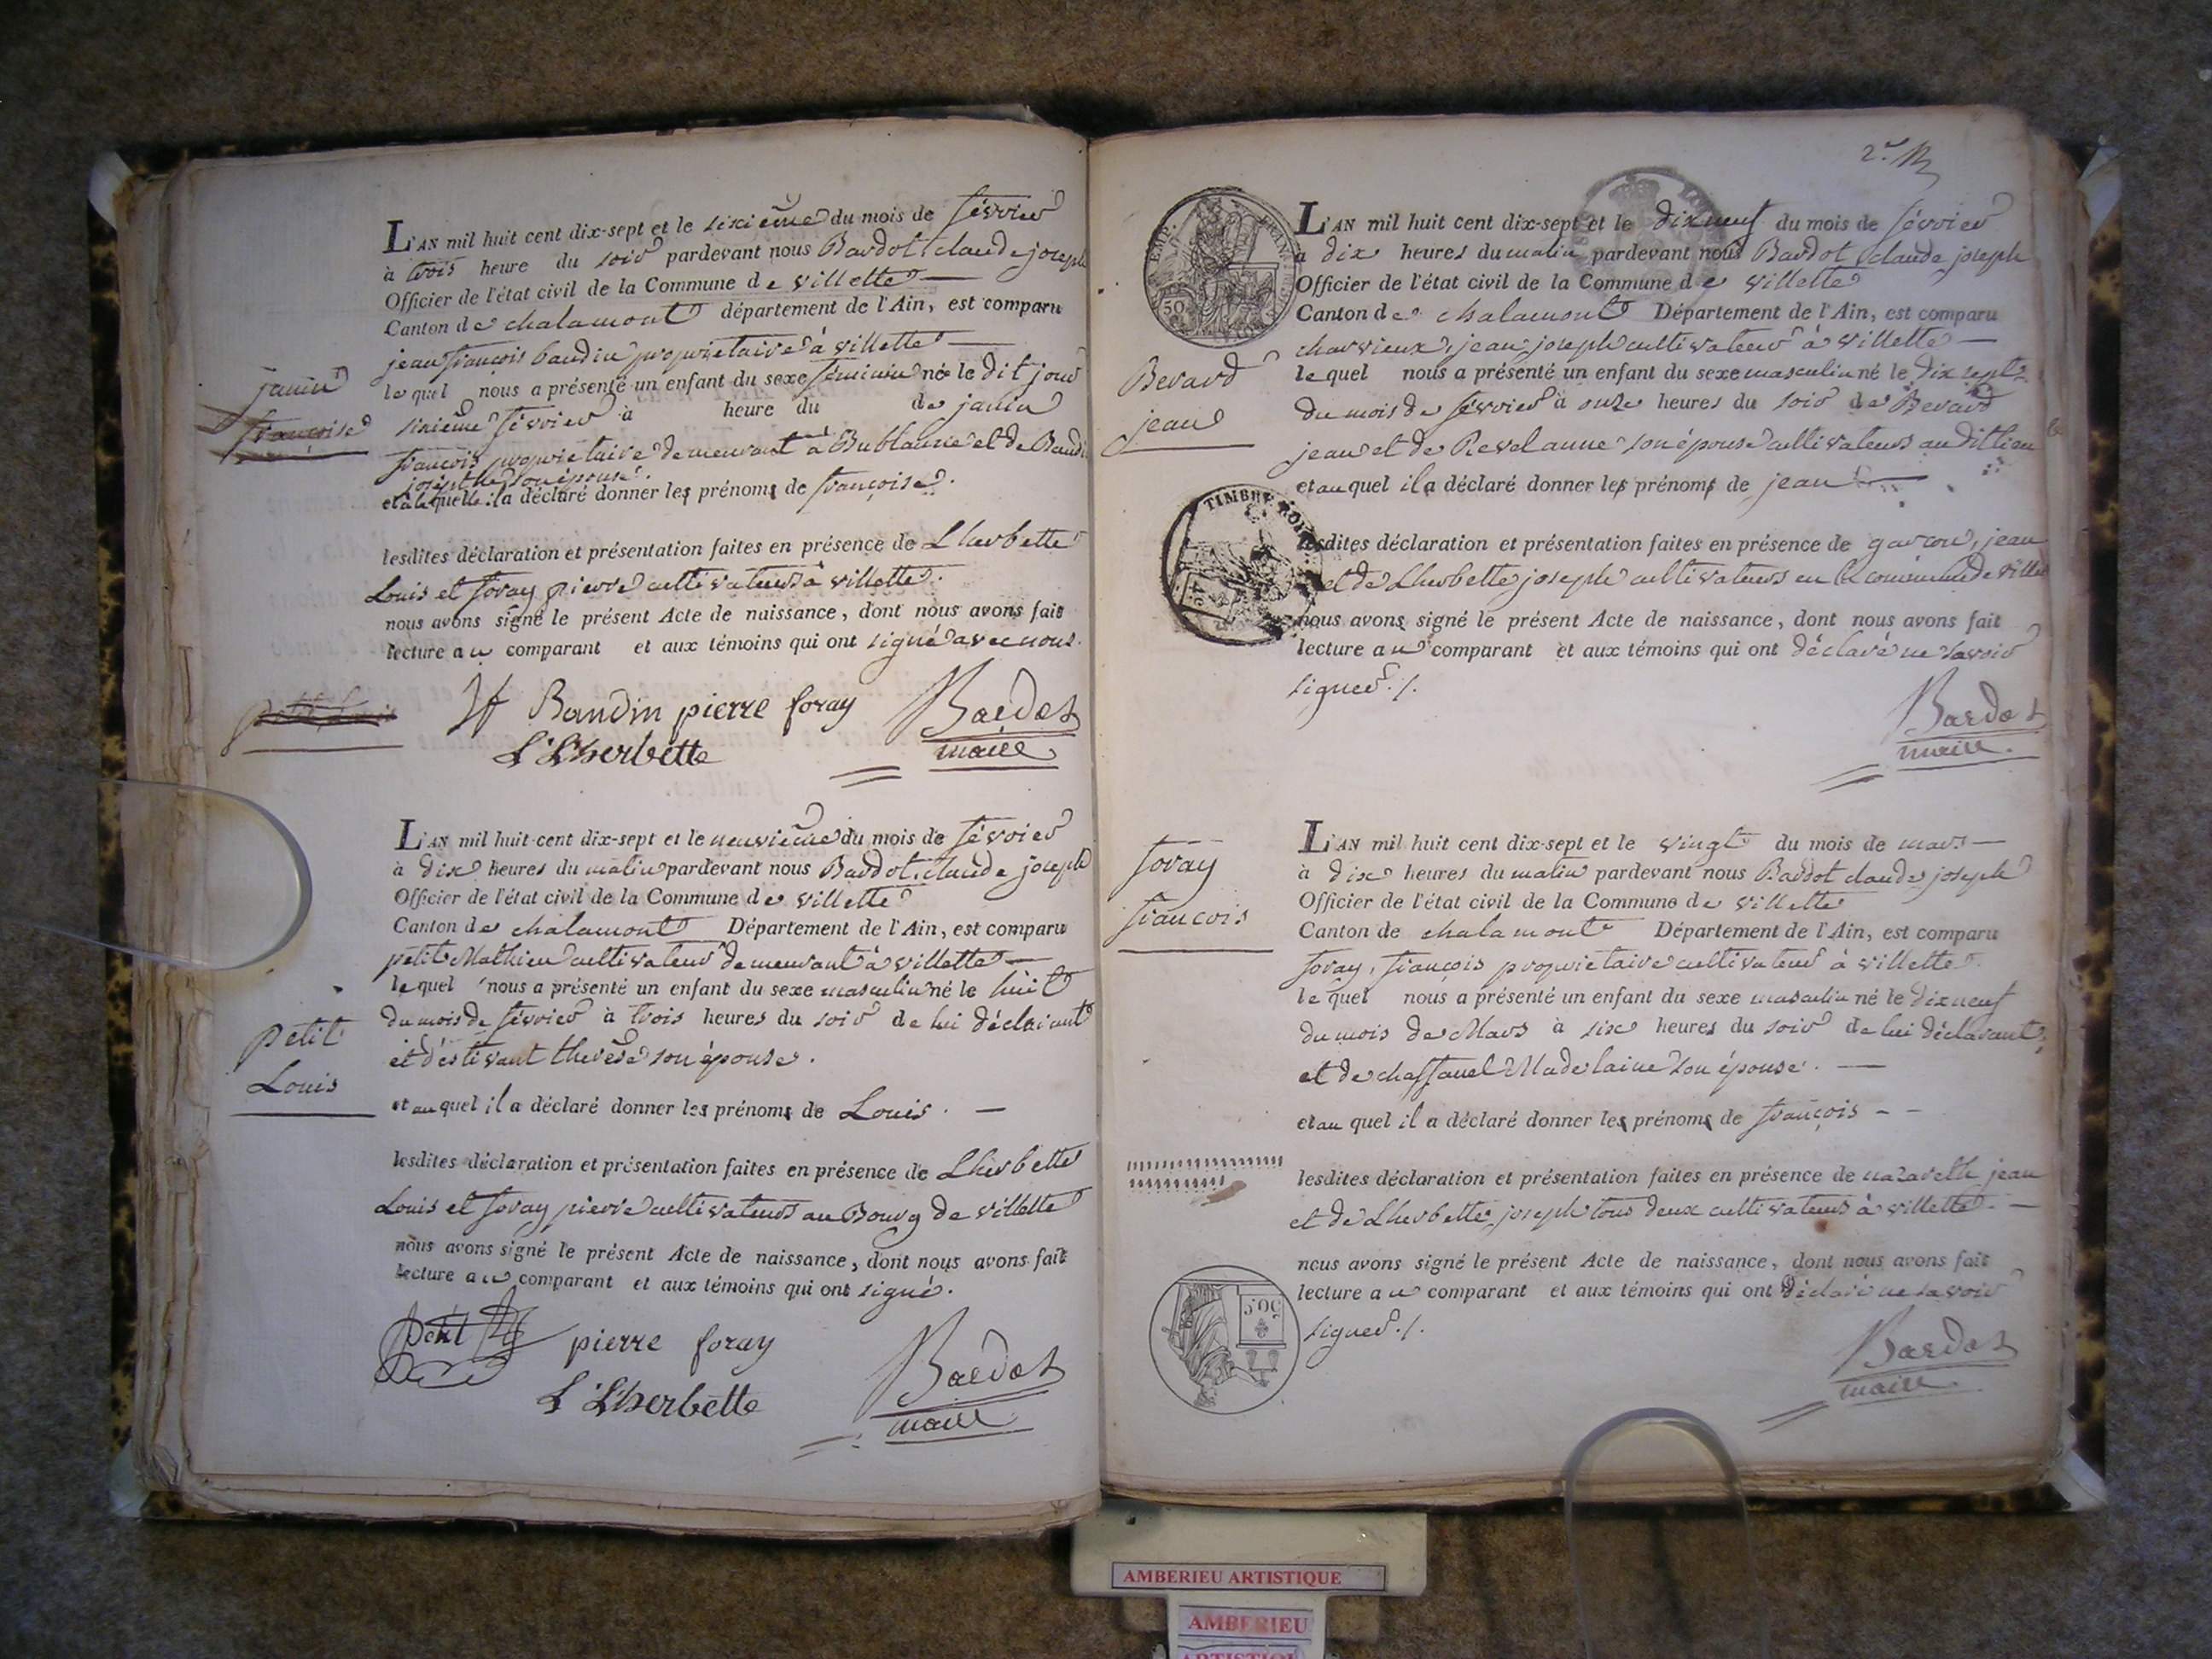 janin
françoise
L'AN mil huit cent dix-sept et le sixième du mois de février
à trois heure du soir pardevant nous Bardot claude joseph
Officier de l'état civil de la Commune de villette
Canton de chalamont département de l'Ain, est comparu
jean françois baudin propriétaire à villette
le quel nous a présenté un enfant du sexe féminin né le dit jour
sixième février à heure du de janin
françois propriétaire demeurant à Bublanne et de Baudin
josephthe son épouse.
et à la quelle il a déclaré donner les prénoms de françoise.
lesdites déclaration et présentation faites en présence de Lherbette
Louis et foray pierre cultivateurs à villette.
nous avons signé le présent Acte de naissance, dont nous avons fait
lecture au comparant et aux témoins qui ont signé avec nous.
Baudin pierre foray Bardot
L. Lherbette maire
Petit
Louis
L'AN mil huit cent dix-sept et le neuvième du mois de février
à dix heures du matin pardevant nous Bardot claude joseph
Officier de l'état civil de la Commune de villette
Canton de chalamont Département de l'Ain, est comparu
petit Mathieu cultivateur demeurant à villette
le quel nous a présenté un enfant du sexe masculin né le huit
du mois de février à trois heures du soir de lui déclarant
et d'estivant therèse son épouse.
et au quel il a déclaré donner les prénoms de Louis.
lesdites déclaration et présentation faites en présence de Lherbette
Louis et foray pierre cultivateurs au Bourg de villette
nous avons signé le présent Acte de naissance, dont nous avons fait
lecture au comparant et aux témoins qui ont signé.
petit pierre foray Bardot
L. Lherbette maire
2.e
Berard
jean
L'AN mil huit cent dix-sept et le dixneuf du mois de février
à dix heures du matin pardevant nous Bardot claude joseph
Officier de l'état civil de la Commune de villette
Canton de chalamont Département de l'Ain, est comparu
charvieux, jean joseph cultivateur à villette
le quel nous a présenté un enfant du sexe masculin né le dix sept
du mois de février à onze heures du soir de Berard
jean et de Revel anne son épouse cultivateurs au dit lieu
et au quel il a déclaré donner les prénoms de jean
TIMBRE ROYAL
lesdites déclaration et présentation faites en présence de garçon, jean
et de Lherbette joseph cultivateurs en la commune de villette
nous avons signé le présent Acte de naissance, dont nous avons fait
lecture au comparant et aux témoins qui ont déclaré ne savoir
signer./.
Bardot
maire.
foray
francois
L'AN mil huit cent dix-sept et le vingt du mois de mars
à dix heures du matin pardevant nous Bardot claude joseph
Officier de l'état civil de la Commune de villette
Canton de chalamont Département de l'Ain, est comparu
foray, françois propriétaire cultivateur à villette
le quel nous a présenté un enfant du sexe masculin né le dixneuf
du mois de Mars à six heures du soir de lui déclarant
et de chassanel Madelaine son épouse.
et au quel il a déclaré donner les prénoms de françois
lesdites déclaration et présentation faites en présence de nazareth jean
et de Lherbette joseph tous deux cultivateurs à villette.
nous avons signé le présent Acte de naissance, dont nous avons fait
lecture au comparant et aux témoins qui ont déclaré ne savoir
signer./.
50.C
Bardot
maire
AMBERIEU ARTISTIQUE
AMBERIEU
ARTISTIQUE